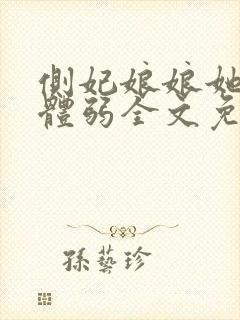 側妃娘娘她
體弱全文免
孫藝珍